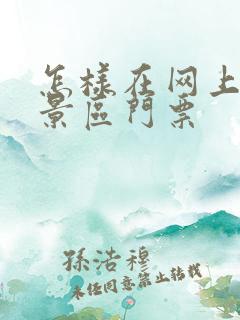 怎樣在网上
景區門票
孫浩穆
未任同意禁止转载